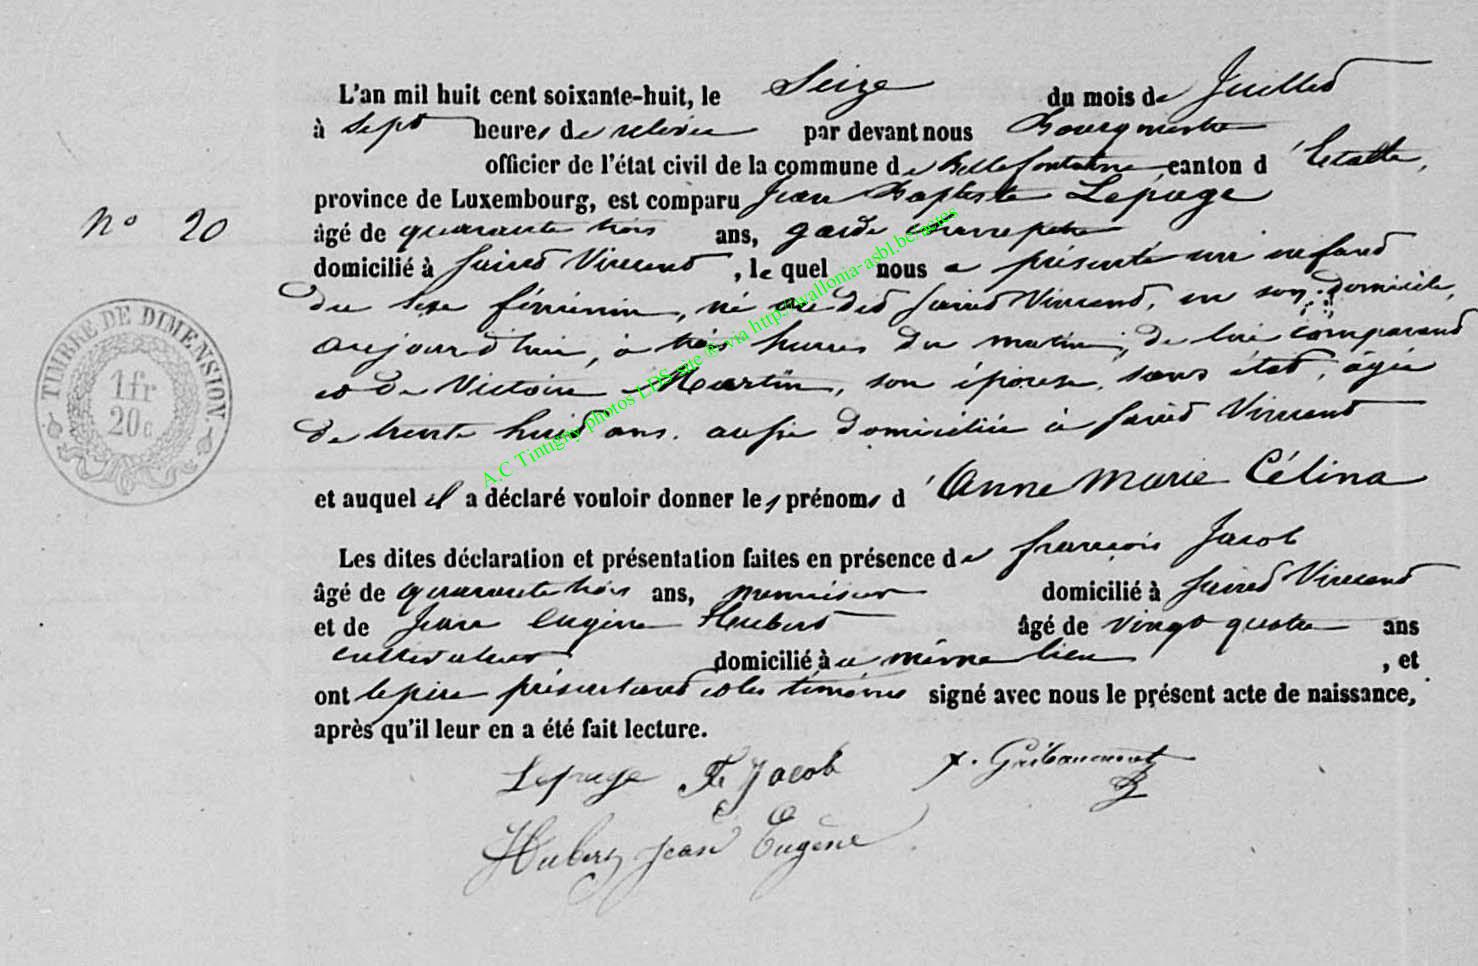 L'an mil huit cent soixante-huit, le Seize du mois de Juillet
à Sept heures de relevée par devant nous Bourgmestre
officier de l'état civil de la commune de Bellefontaine, canton d'Etalle,
province de Luxembourg, est comparu Jean Baptiste Lepage
N° 20
âgé de quarante trois ans, garde
domicilié à Saint Vincent, le quel nous a présenté un enfant
du sexe féminin, né au dit Saint Vincent, en son domicile,
aujourd'hui, à trois heures du matin, de lui comparant
et de Victoire Martin, son épouse, sans état, âgée
de trente huit ans, aussi domiciliée à Saint Vincent
et auquel il a déclaré vouloir donner les prénoms d'Anne Marie Célina
Les dites déclaration et présentation faites en présence de françois Jacob
âgé de quarante trois ans, menuisier domicilié à Saint Vincent
et de Jean Eugène Hubert âgé de vingt quatre ans
cultivateur domicilié à u même lieu, et
ont le père présentant et les témoins signé avec nous le présent acte de naissance,
après qu'il leur en a été fait lecture.
Lepage Fr Jacob
Hubert Jean Eugène
TIMBRE DE DIMENSION.
1fr
20c
A.C Tintigny photos LDS site © via http://wallonia-asbl.be/actes